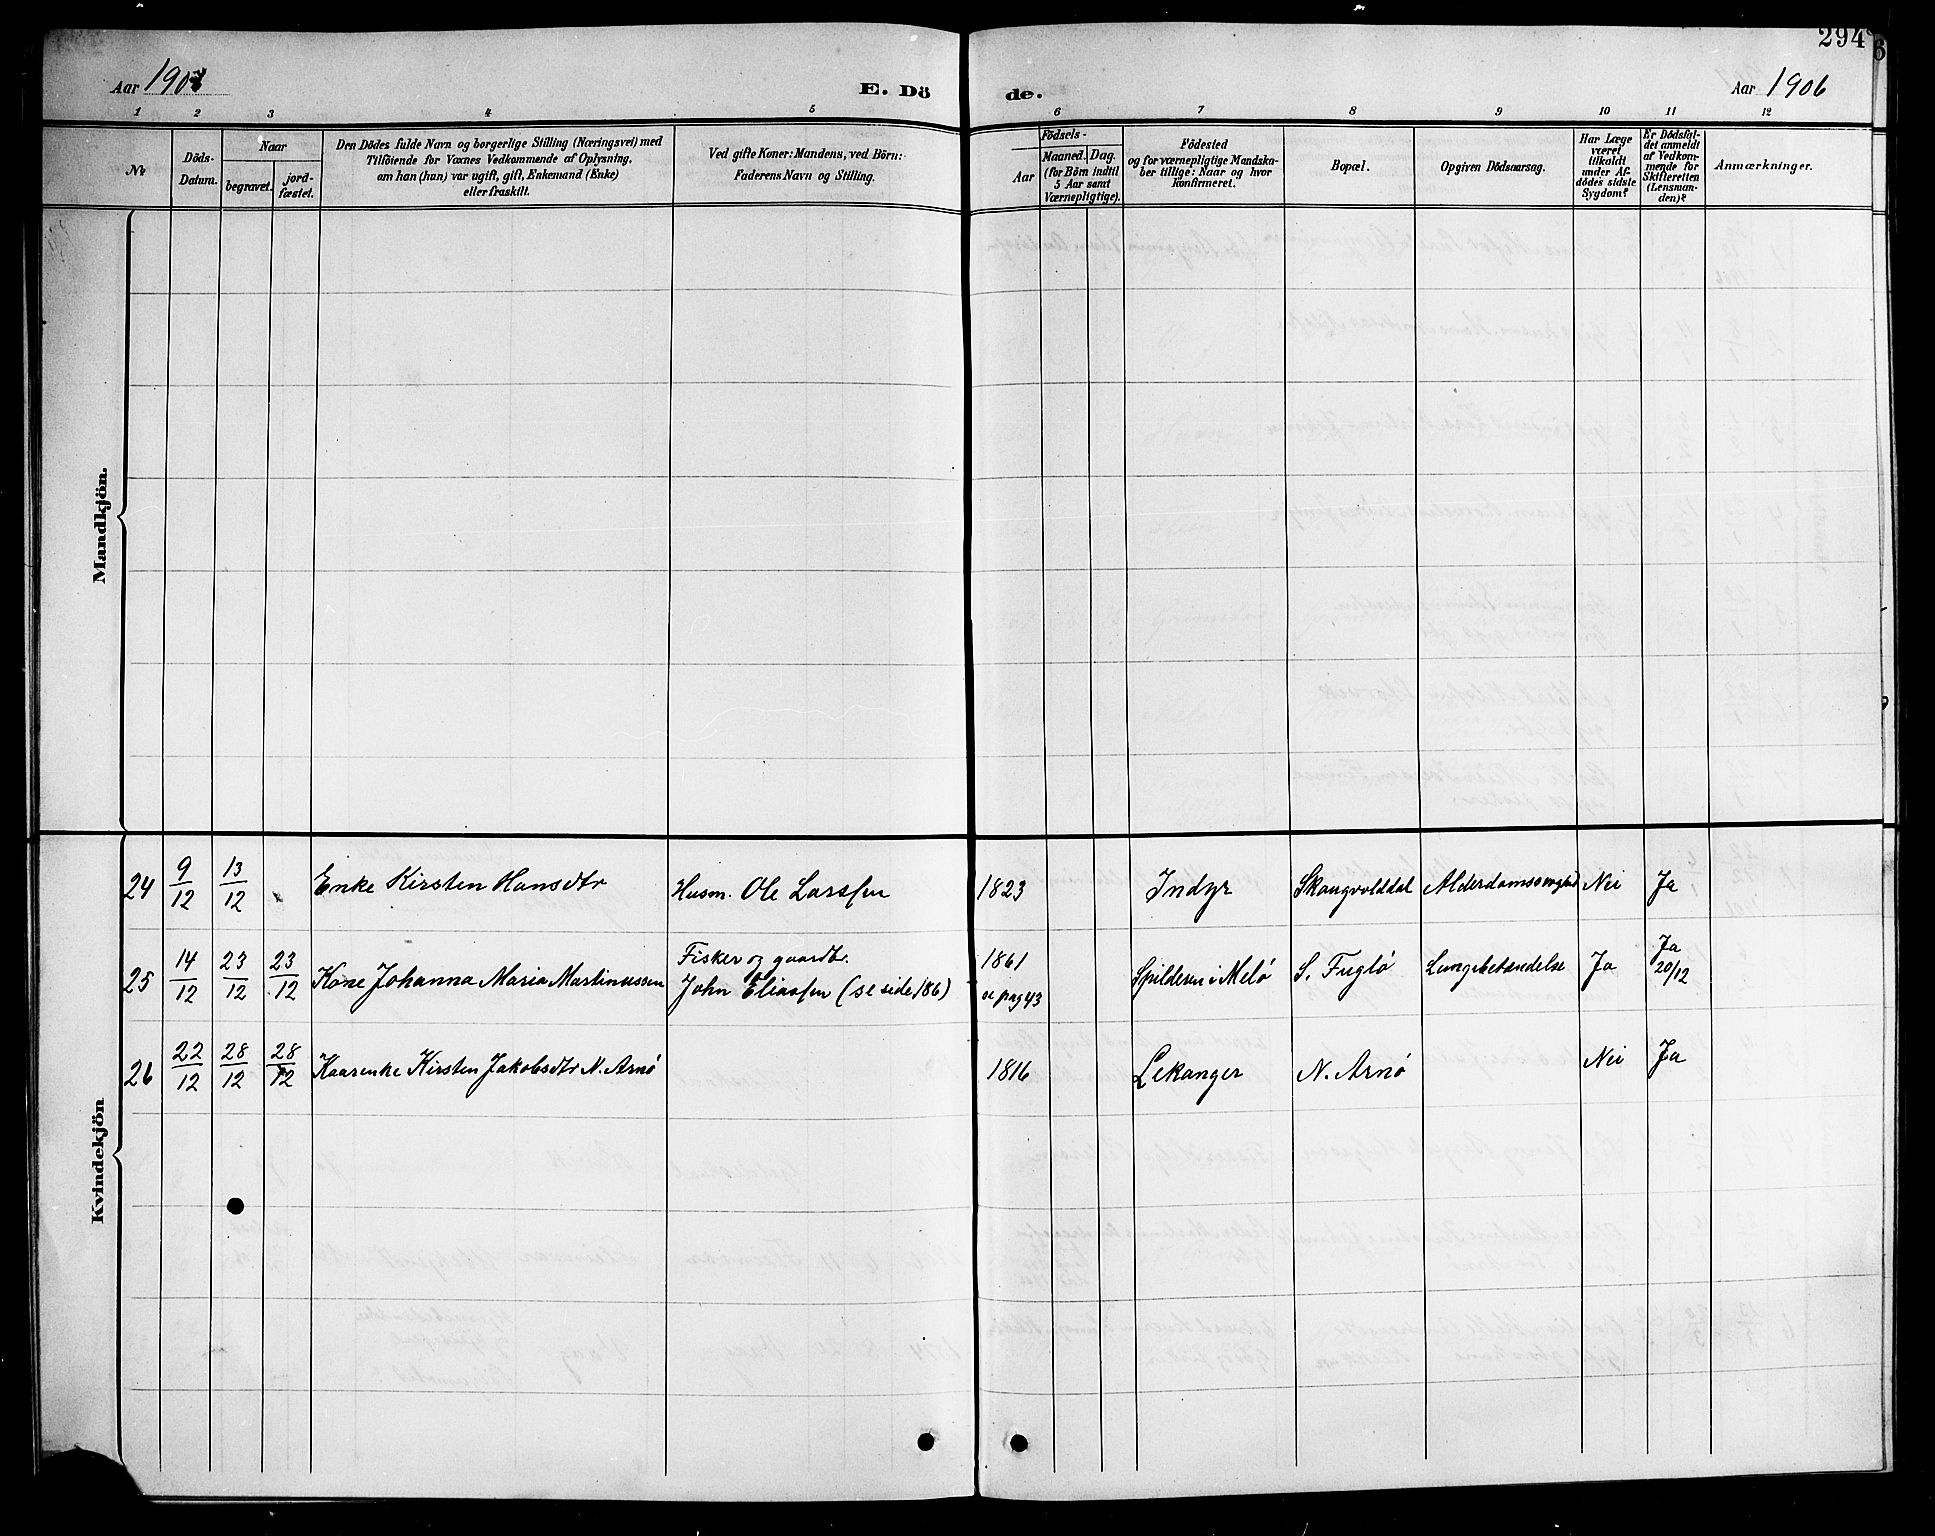 294
6
Aar 190
E. Dö
de.
Aar 1906
1 2 3 4 5 6 7 8 9 10 11 12
No
Döds-
Datum.
Naar
begravet.
jord-
fæstet.
Den Dödes fulde Navn og borgerlige Stilling (Næringsvei) med
Tilföiende for Voxnes Vedkommende af Oplysning,
om han (hun) var ugift, gift, Enkemand (Enke)
eller fraskilt.
Ved gifte Koner: Mandens, ved Börn:
Faderens Navn og Stilling.
Födsels-
Aar
Maaned.
Dag.
(for Börn indtil
5 Aar samt
Værnepligtige).
Födested
og for værnepligtige Mandska-
ber tillige: Naar og hvor
konfirmeret.
Bopæl.
Opgiven Dödsaarsag.
Har Læge
været
tilkaldt
under Af-
dödes sidste
Sygdom?
Er Dödsfal-
det anmeldt
af Vedkom-
mende for
Skifteretten
(Lensman-
den)?
Anmærkninger.
Mandkjön.
Kvindekjön
24 9/12 13/12 Enke Kirsten Hansdtr Husm. Ole Larssen 1823 Indyr Skaugvolddal Nei Ja
25 14/12 23/12 23/12 Kone Johanna Maria Martinussen Fisker og gaardbr.
John Eliassen (se side 186) 1861
se pag 43 Spilderen i Melö S. Fuglö Lungebetændelse Ja Ja
20/12
26 22/12 28/12 28/12 Kaarenke Kirsten Jakobsdtr N. Arnö 1816 Lekanger N. Arnö Nei Ja